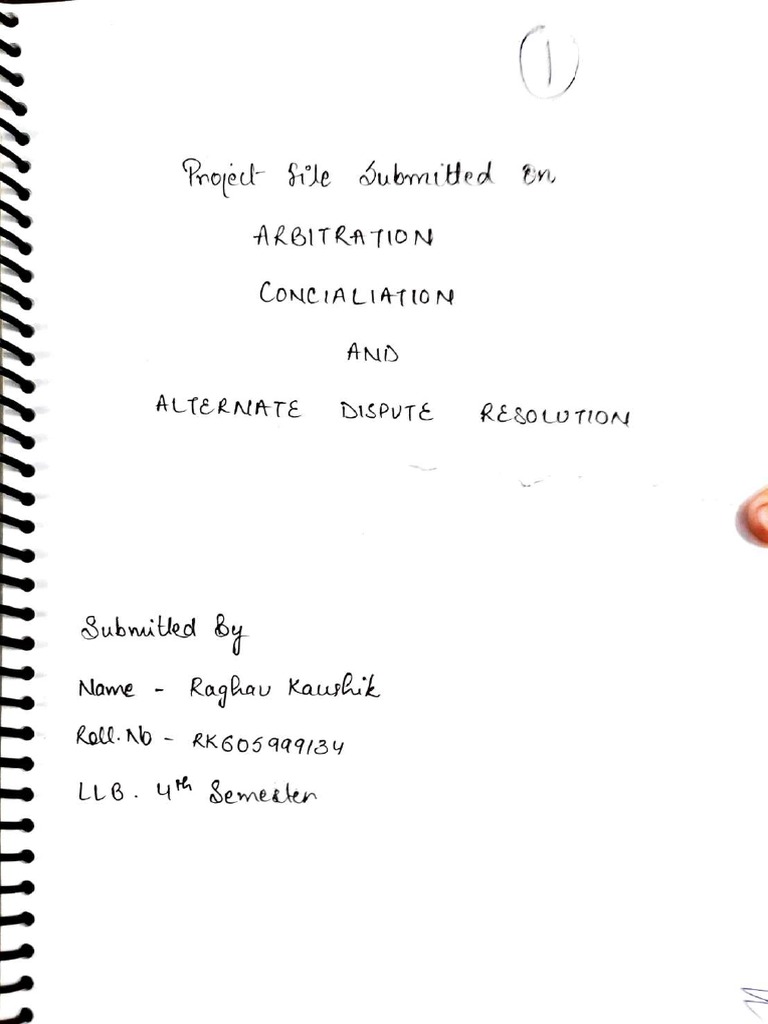 1
Project file Submitted on
ARBITRATION
CONCIALIATION
AND
ALTERNATE DISPUTE RESOLUTION
Submitted By
Name - Raghav Kaushik
Roll.No - RK605999134
LLB. 4th Semester